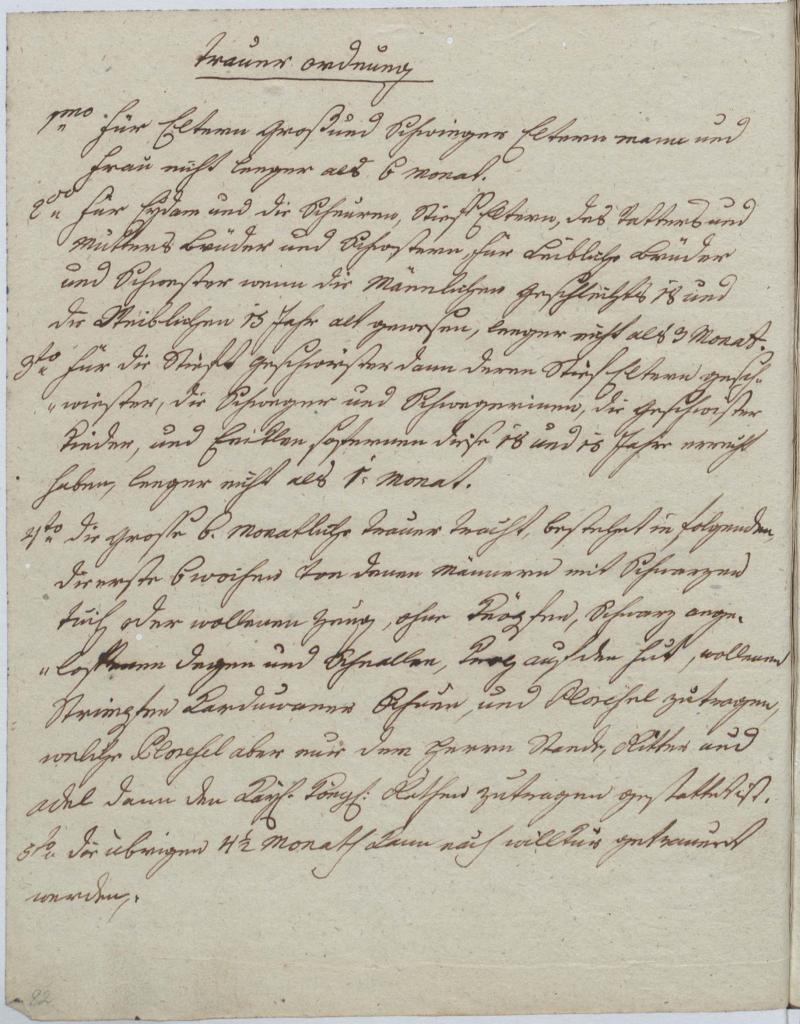 Trauer ordnung
1mo Für Eltern Groß und Schwieger Eltern mann und
Frau nicht lenger als 6 monat.
2do Für Eydam und die Schnuren, Stief Eltern, des Vatters und
Mutters Brüder und Schwestern, für Leibliche Brüder
und Schwester wenn die Mänlichen geschlechts 18 und
die Weiblichen 15 Jahr alt gewesen, lenger nicht als 3 Monat.
3to Für die Stieff geschwister dann deren Stief Eltern gesch-
wiester, die Schwager und Schwegerinnen, die geschwister
Kinder, und Enklen sofernen diese 18 und 15 Jahr erreicht
haben, lenger nicht als 1: Monat.
4to die grosse 6. Monatliche trauer tracht, bestehet in folgenden,
die erste 6 wochen von denen Männern mit Schwarzen
tuch oder wollenen Zeug, ohne Knöpfen, Schwarz ange-
loffenen Degen und Schnallen, auf den Hut, wollenen
Strimpfen Carduwaner Schuen, und zutragen,
welche aber nur dem Herrn Stande, Ritter und
adel dann den Kays. König: Räthen zutragen gestattet ist.
5to die übrigen 4½ Monath kann nach willkür getrauert
werden.
82